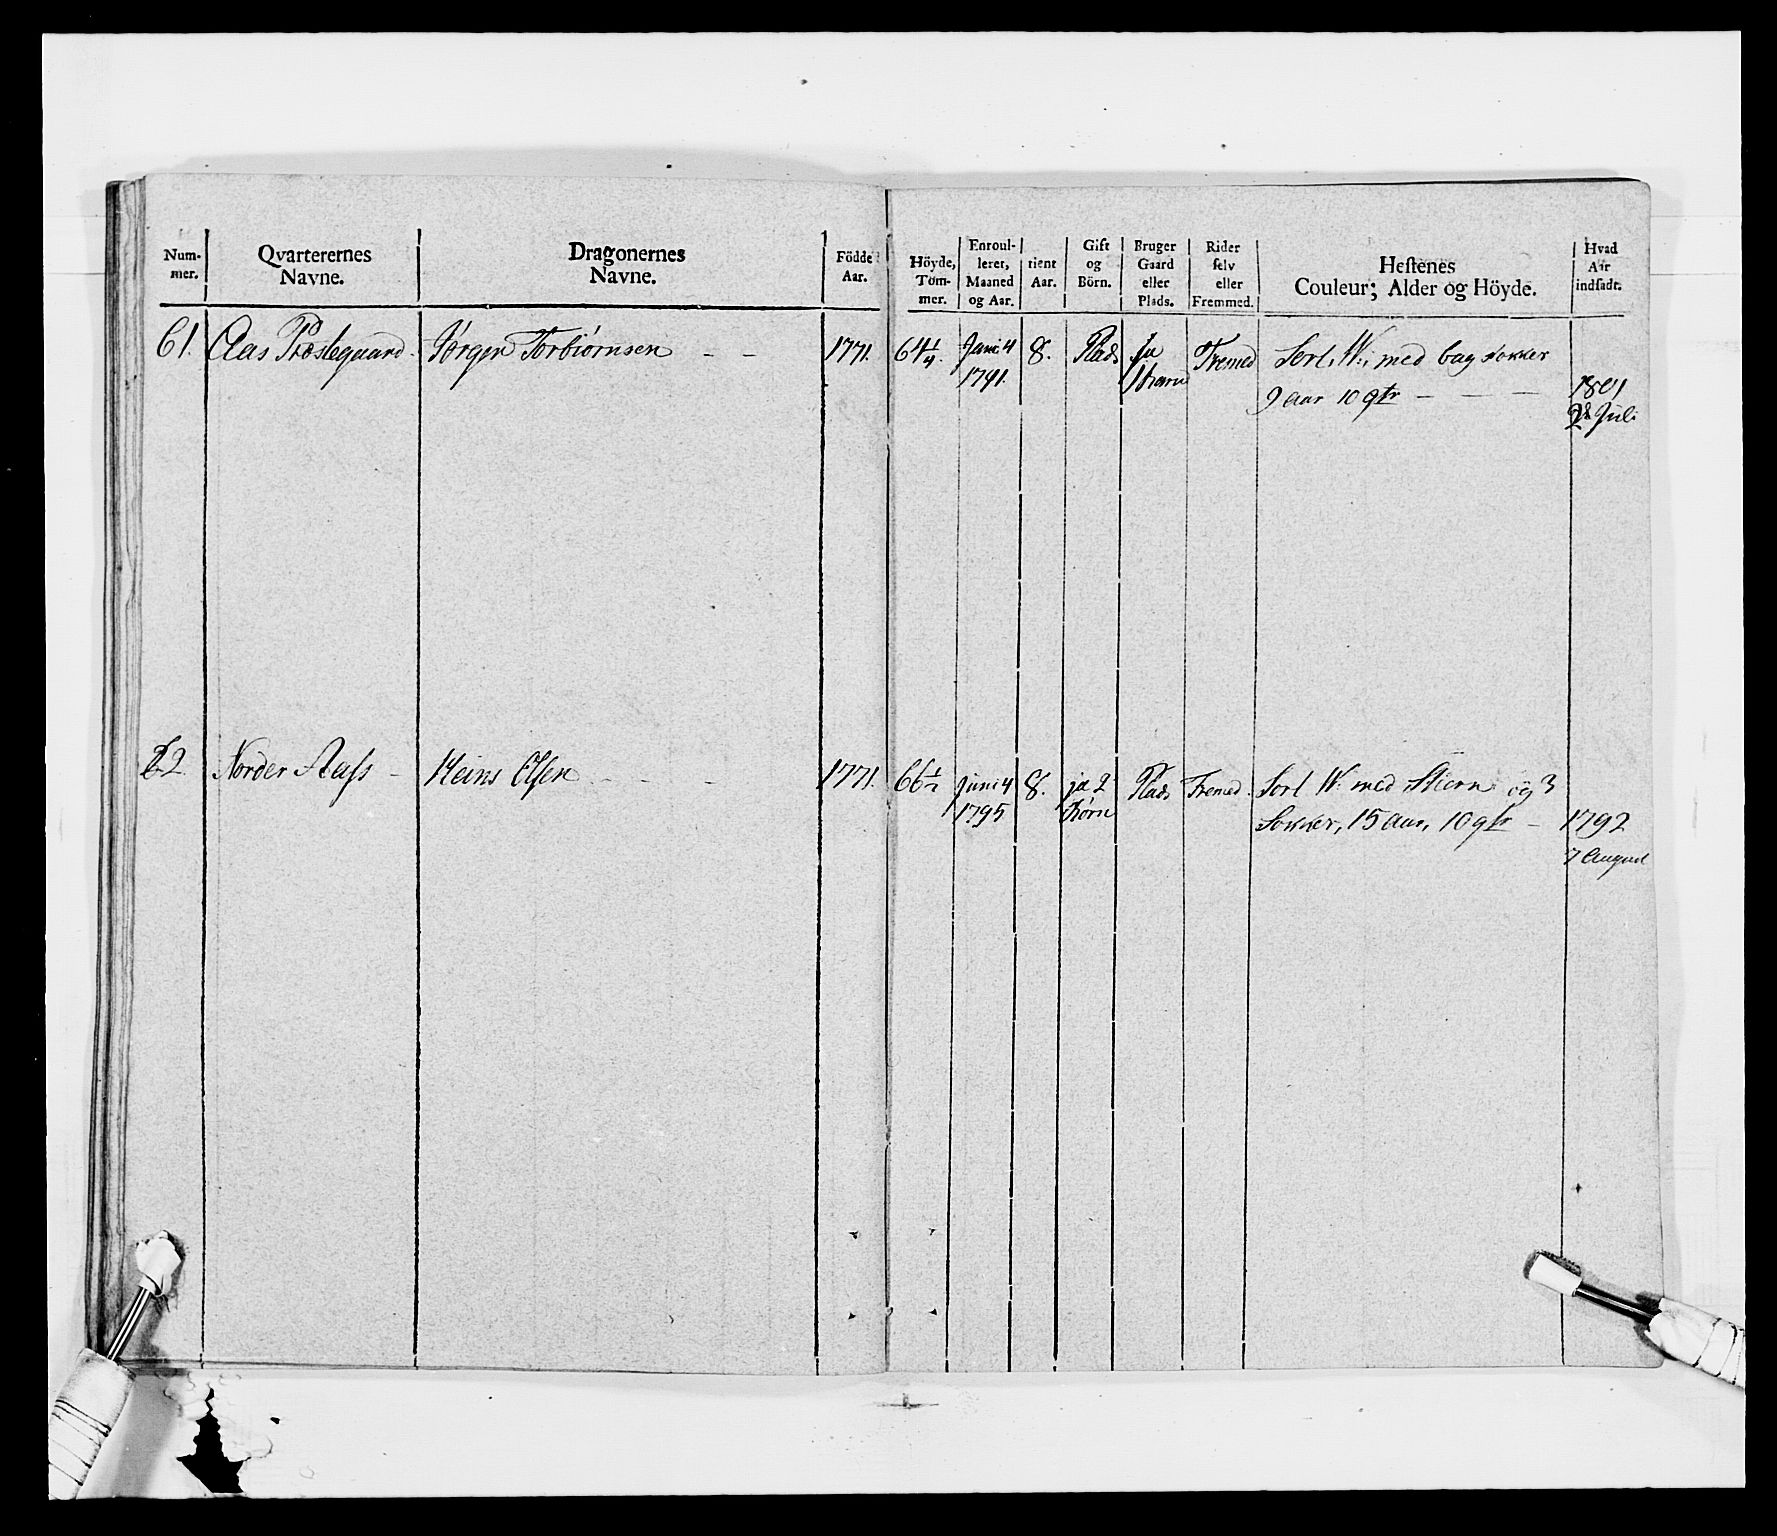 Num-
mer.
Qvarterernes
Navne.
Dragonernes
Navne.
Födde
Aar.
Höyde,
Tom-
mer.
Enroul-
leret,
Maaned
og Aar.
tient
Aar.
Gift
og
Börn.
Bruger
Gaard
eller
Plads.
Rider
selv
eller
Fremmed.
Hestenes
Couleur; Alder og Höyde.
Hvad
Aar
indsadt.
61. Aas Præstegaard. Jørgen Torbiørnsen - - 1771. 64 1/4. Juni 4 8. Plads Ja Fremed Sort, W: med bag sokker
1791. 1 barn 9 aar 10 qtr - - - 1801
28 Juli
62. Norder Aass - Heins Olsen - - - 1771. 66 1/2 Juni 4 8. ja 2 Plads Fremed. Sort W: med Stiern og 3
1795 Børn Sokker, 15 aar, 10 qtr - 1792
7 August